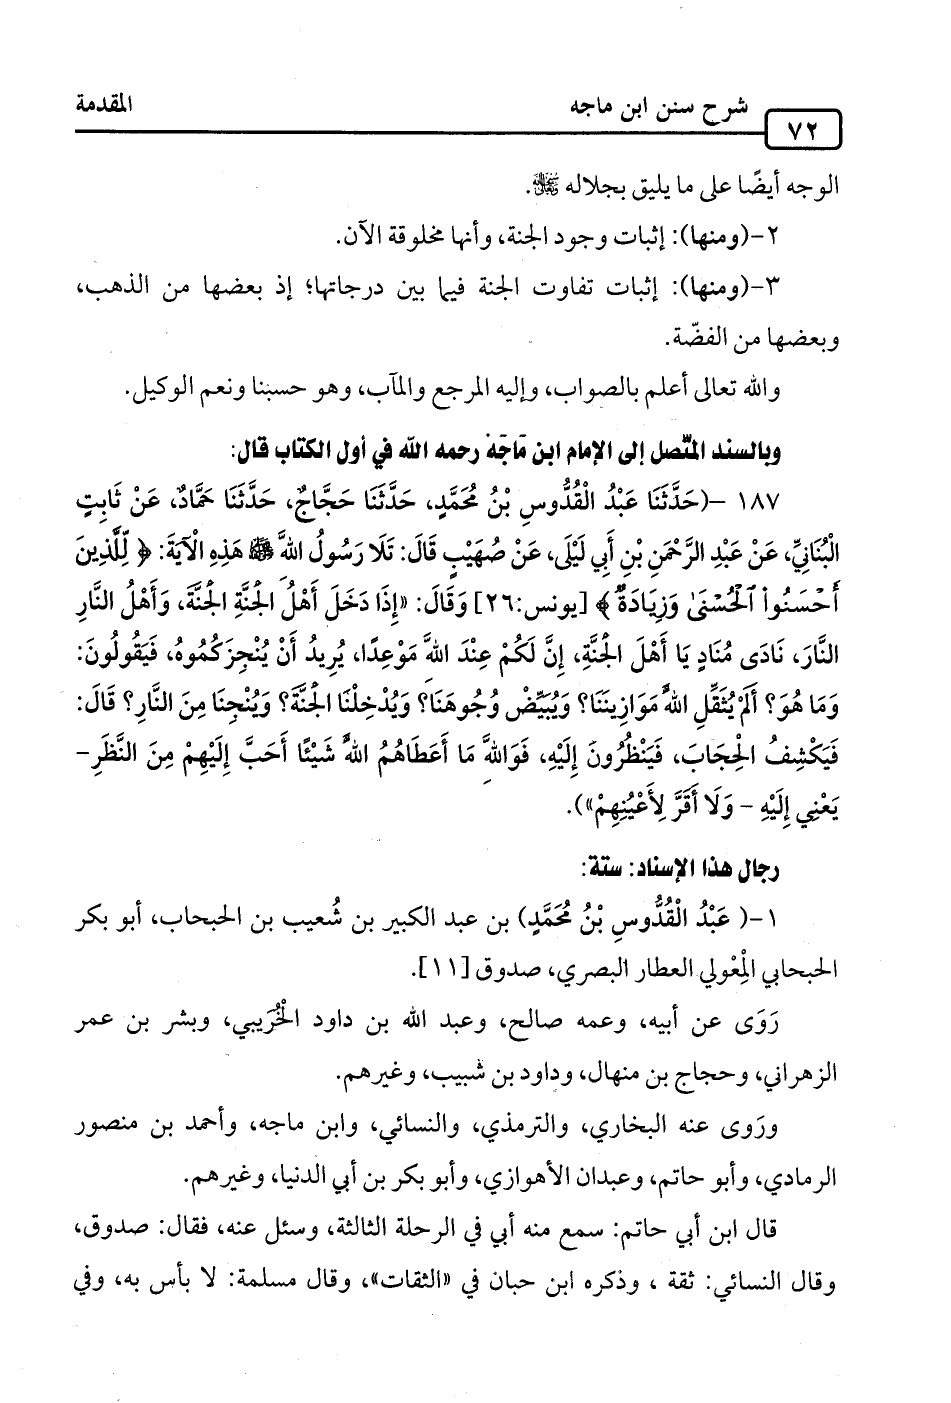 شرح سنن ابن ماجه
المقدمة
٧٢
الوجه أيضًا على ما يليق بجلاله ﷻ.
٢-(ومنها): إثبات وجود الجنة، وأنها مخلوقة الآن.
٣-(ومنها): إثبات تفاوت الجنة فيما بين درجاتها؛ إذ بعضها من الذهب،
وبعضها من الفضّة.
والله تعالى أعلم بالصواب، وإليه المرجع والمآب، وهو حسبنا ونعم الوكيل.
وبالسند المتّصل إلى الإمام ابن مَاجَهْ رحمه الله في أول الكتاب قال:
١٨٧ -(حَدَّثَنَا عَبْدُ الْقُدُّوسِ بْنُ مُحَمَّدٍ، حَدَّثَنَا حَجَّاجٌ، حَدَّثَنَا حَمَّادٌ، عَنْ ثَابِتٍ
الْبُنَانِيِّ، عَنْ عَبْدِ الرَّحْمَنِ بْنِ أَبِي لَيْلَى، عَنْ صُهَيْبٍ قَالَ: تَلَا رَسُولُ اللهِ ﷺ هَذِهِ الْآيَةَ: ﴿ لِّلَّذِينَ
أَحْسَنُواْ الْحُسْنَىٰ وَزِيَادَةٌ ﴾ [يونس:٢٦] وَقَالَ: «إِذَا دَخَلَ أَهْلُ الْجَنَّةِ الْجَنَّةَ، وَأَهْلُ النَّارِ
النَّارَ، نَادَى مُنَادٍ يَا أَهْلَ الْجَنَّةِ، إِنَّ لَكُمْ عِنْدَ اللهِ مَوْعِدًا، يُرِيدُ أَنْ يُنْجِزَكُمُوهُ، فَيَقُولُونَ:
وَمَا هُوَ؟ أَلَمْ يُثَقِّلِ اللهُ مَوَازِينَنَا؟ وَيُبَيِّضْ وُجُوهَنَا؟ وَيُدْخِلْنَا الْجَنَّةَ؟ وَيُنْجِنَا مِنَ النَّارِ؟ قَالَ:
فَيَكْشِفُ الْحِجَابَ، فَيَنْظُرُونَ إِلَيْهِ، فَوَاللهِ مَا أَعْطَاهُمُ اللهُ شَيْئًا أَحَبَّ إِلَيْهِمْ مِنَ النَّظَرِ-
يَعْنِي إِلَيْهِ - وَلَا أَقَرَّ لِأَعْيُنِهِمْ»).
رجال هذا الإسناد: ستة:
١-( عَبْدُ الْقُدُّوسِ بْنُ مُحَمَّدٍ) بن عبد الكبير بن شُعيب بن الحبحاب، أبو بكر
الحبحابي المِعْولي العطار البصري، صدوق [١١].
رَوَى عن أبيه، وعمه صالح، وعبد الله بن داود الْخُرَيبي، وبشر بن عمر
الزهراني، وحجاج بن منهال، وداود بن شبيب، وغيرهم.
ورَوى عنه البخاري، والترمذي، والنسائي، وابن ماجه، وأحمد بن منصور
الرمادي، وأبو حاتم، وعبدان الأهوازي، وأبو بكر بن أبي الدنيا، وغيرهم.
قال ابن أبي حاتم: سمع منه أبي في الرحلة الثالثة، وسئل عنه، فقال: صدوق،
وقال النسائي: ثقة ، وذكره ابن حبان في «الثقات»، وقال مسلمة: لا بأس به، وفي